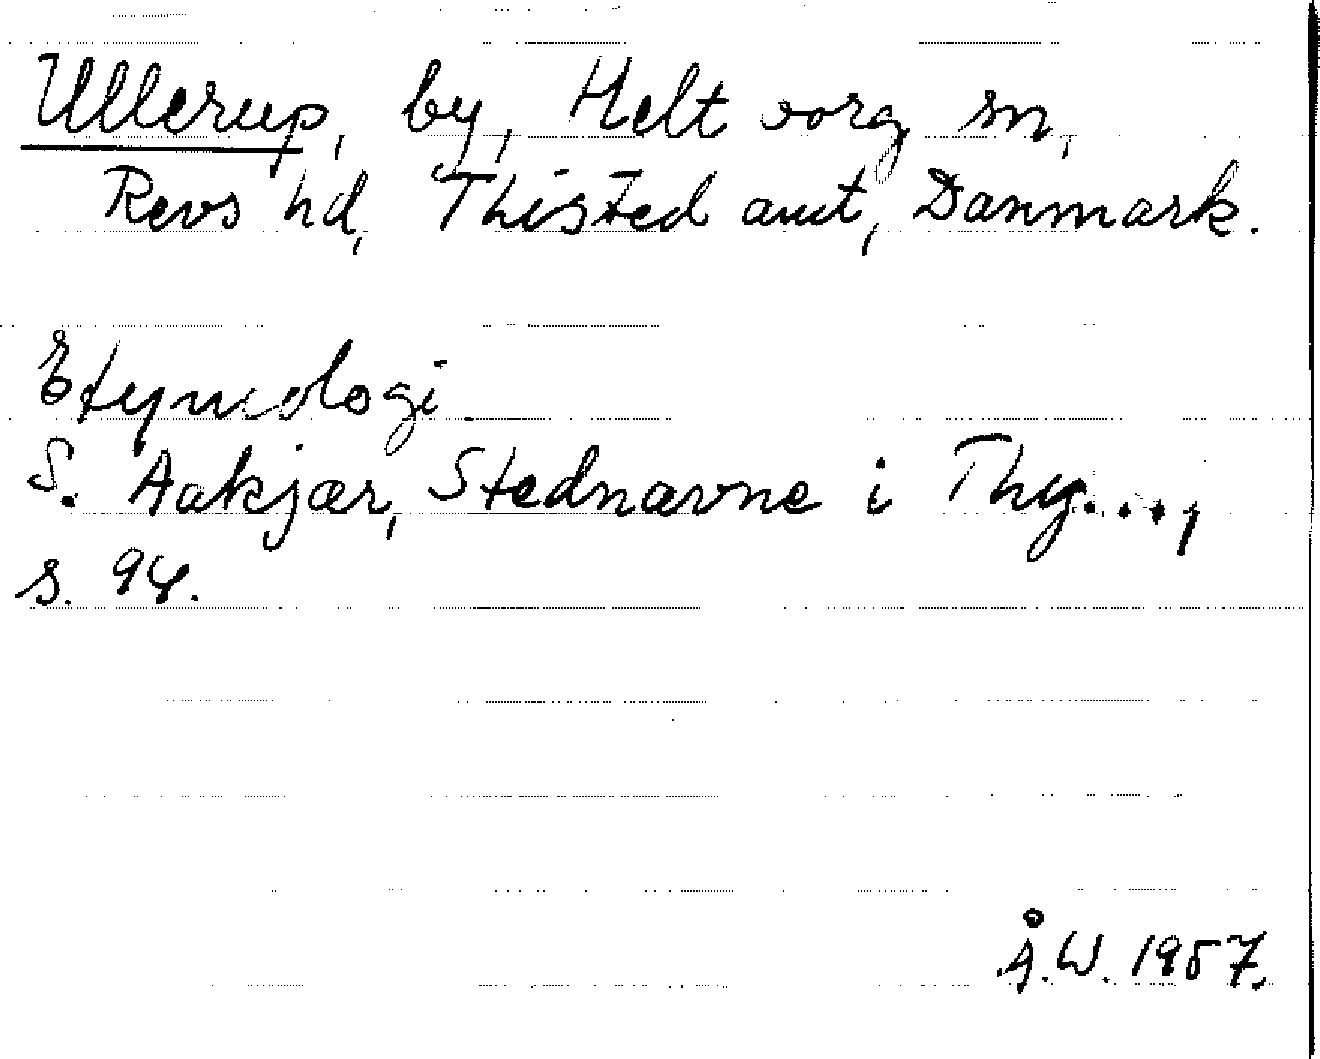 Ullerup, by, Helt vorg sn,
Revs hd, Thisted amt, Danmark.
Etymologi
S. Aakjær, Stednavne i Thy...,
s. 94.
Å.W. 1957.